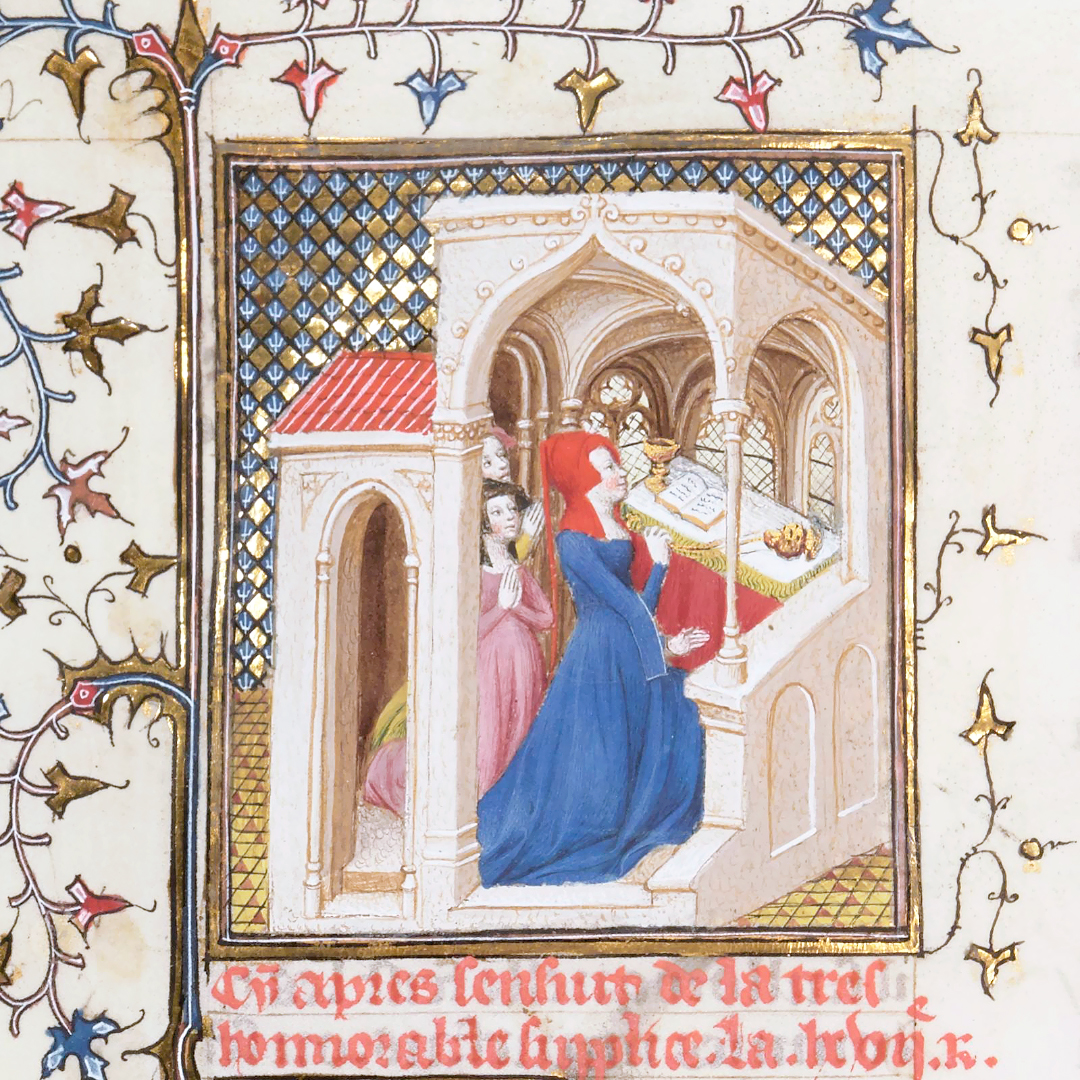 Cy apres sensuit de la tres
honnorable supplice. La. lxvij.e R.